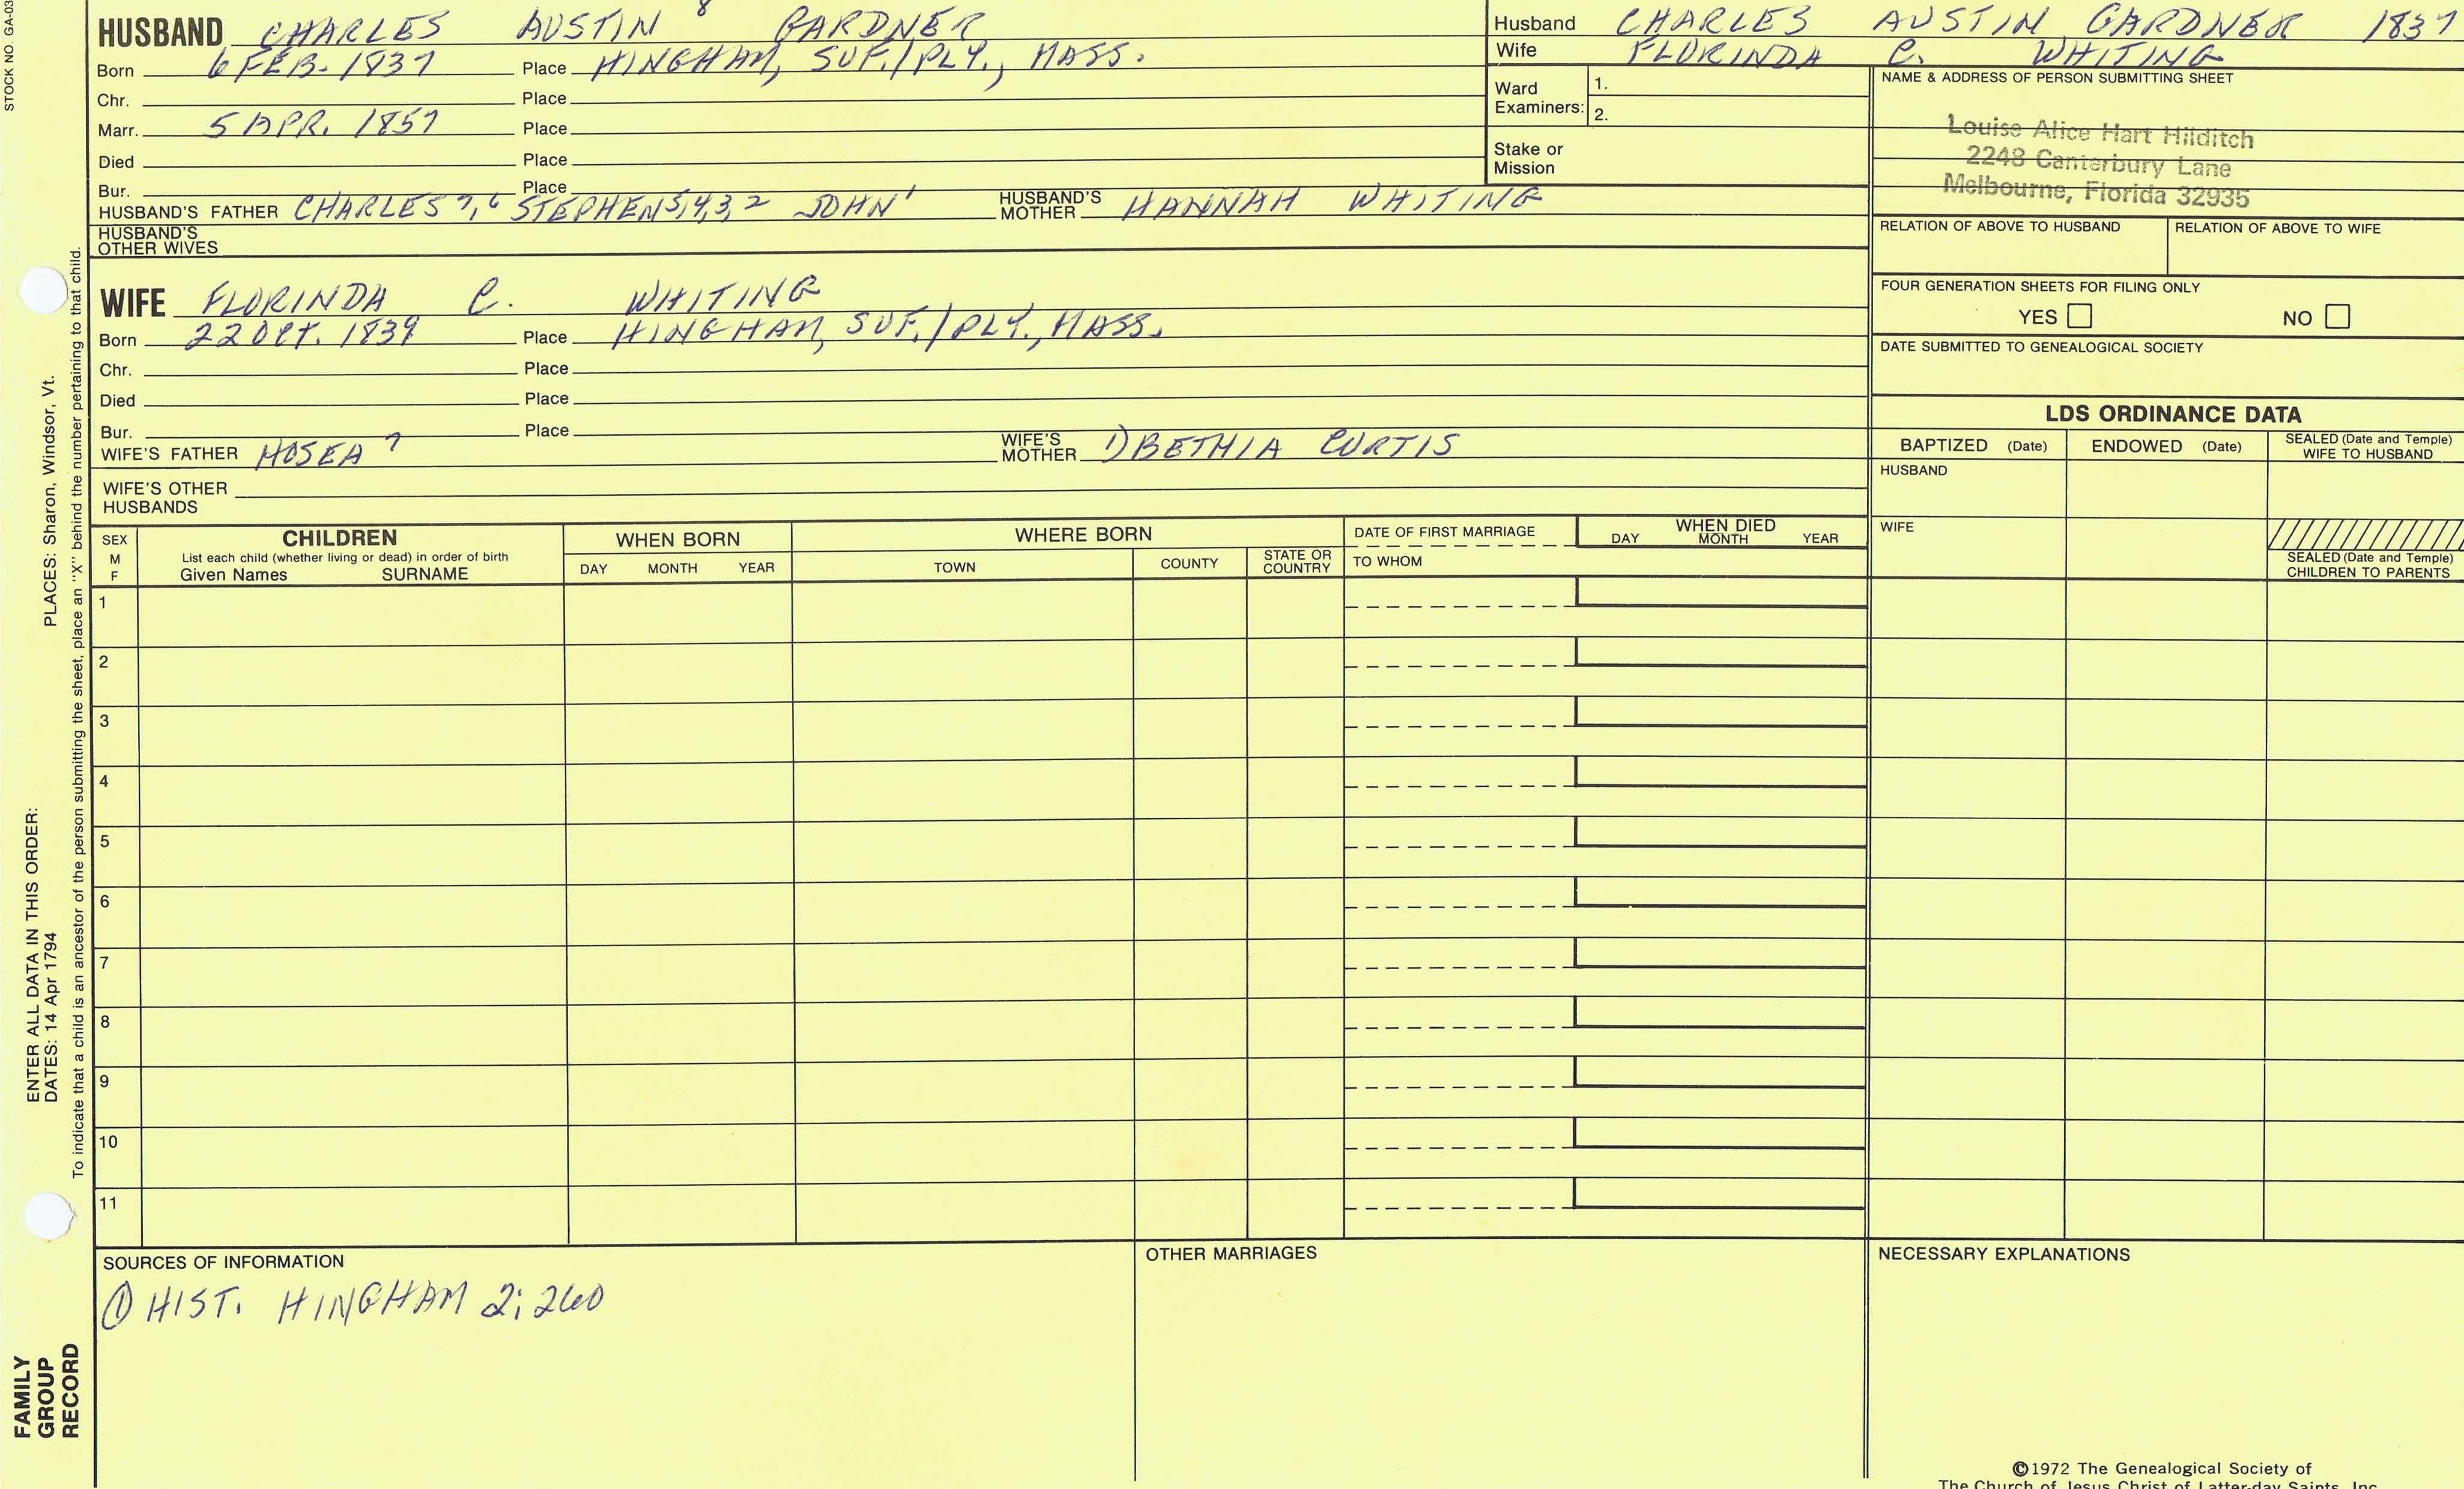 STOCK NO GA-03
HUSBAND CHARLES AUSTIN 8 GARDNER
Born 6 FEB. 1837 Place HINGHAM, SUF./PLY., MASS.
Chr. Place
Marr. 5 APR. 1857 Place
Died Place
Bur. Place
HUSBAND'S FATHER CHARLES 7,6 STEPHEN 5,4,3,2 JOHN 1 HUSBAND'S MOTHER HANNAH WHITING
HUSBAND'S OTHER WIVES
Husband CHARLES AUSTIN GARDNER 1837
Wife FLORINDA C. WHITING
Ward Examiners: 1.
2.
Stake or Mission
NAME & ADDRESS OF PERSON SUBMITTING SHEET
Louise Alice Hart Hilditch
2248 Canterbury Lane
Melbourne, Florida 32935
RELATION OF ABOVE TO HUSBAND RELATION OF ABOVE TO WIFE
FOUR GENERATION SHEETS FOR FILING ONLY
YES NO
DATE SUBMITTED TO GENEALOGICAL SOCIETY
WIFE FLORINDA C. WHITING
Born 22 OCT. 1839 Place HINGHAM, SUF./PLY., MASS.
Chr. Place
Died Place
Bur. Place
WIFE'S FATHER HOSEA 7 WIFE'S MOTHER 1) BETHIA CURTIS
WIFE'S OTHER HUSBANDS
LDS ORDINANCE DATA
BAPTIZED (Date) ENDOWED (Date) SEALED (Date and Temple) WIFE TO HUSBAND
HUSBAND
WIFE
SEALED (Date and Temple)
CHILDREN TO PARENTS
SEX
M
F
CHILDREN
List each child (whether living or dead) in order of birth
Given Names SURNAME
WHEN BORN
DAY MONTH YEAR
WHERE BORN
TOWN COUNTY STATE OR COUNTRY
DATE OF FIRST MARRIAGE
TO WHOM
WHEN DIED
DAY MONTH YEAR
1
2
3
4
5
6
7
8
9
10
11
SOURCES OF INFORMATION
① HIST. HINGHAM 2; 260
OTHER MARRIAGES
NECESSARY EXPLANATIONS
©1972 The Genealogical Society of
The Church of Jesus Christ of Latter-day Saints, Inc.
FAMILY
GROUP
RECORD
ENTER ALL DATA IN THIS ORDER:
DATES: 14 Apr 1794
PLACES: Sharon, Windsor, Vt.
To indicate that a child is an ancestor of the person submitting the sheet, place an "X" behind the number pertaining to that child.